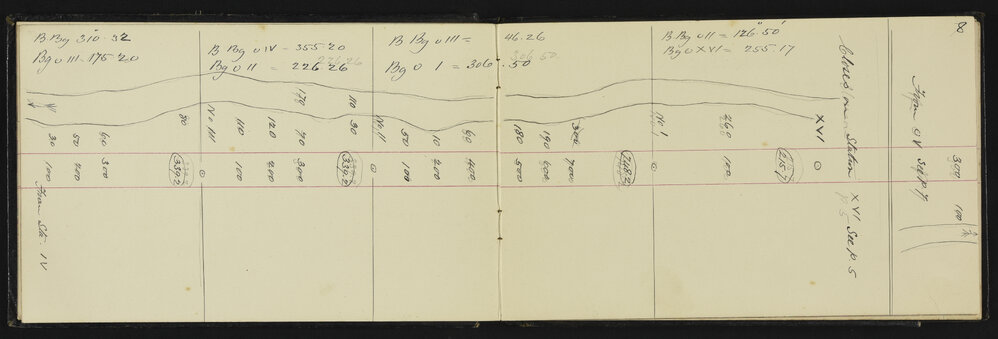 B Bg 310.32
Bg o III 175.20
B Bg o IV - 355.20
Bg o II = 226.26
B Bg o III = 46.26
Bg o I = 306.50
B Bg o II = 126.50
Bg o XVI = 255.17
8
30 50 60 80 No III 110 120 70 170 30 110 No II 50 10 60 180 190 300 No 1 260 XVI
100 200 300 339.2 100 200 300 339.2 100 200 400 500 600 700 748.2 100 215.7
From Sta. IV
Closes on Station XVI See p. 5
p 5
From o V see p. 7
300
100